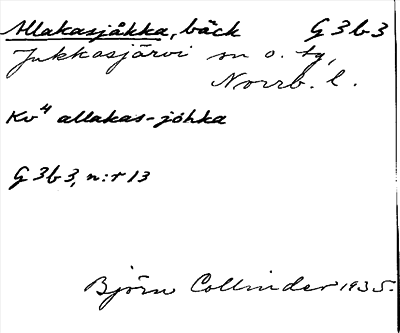 Allakasjåkka, bäck G 3 b 3
Jukkasjärvi sn o. tg,
Norrb. l.
Kv⁴ allakas-jåhka
G 3 b 3, n:r 13
Björn Collinder 1935.